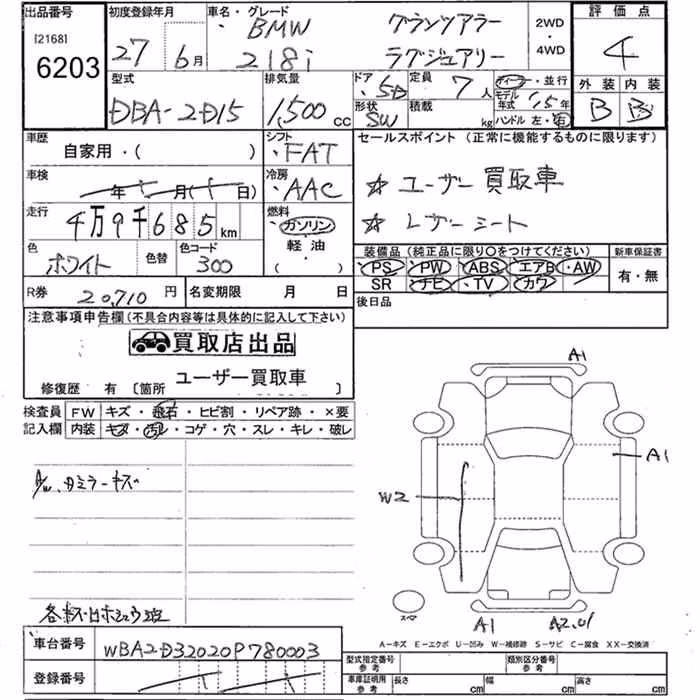 出品番号
[2168]
6203
初度登録年月
27年 6月
車名・グレード
BMW グランツアラー
218i ラグジュアリー
2WD
・
4WD
評価点
4
外装 内装
B B
型式
DBA-2D15
排気量
1,500 CC
ドア
・5D
形状
SW
定員 7人
積載 kg
ディーラー・並行
モデル年式 '15年
ハンドル 左・右
車歴
自家用・( )
シフト
・FAT
車検
年 月( 日)
冷房
・AAC
走行
4万9千685km
燃料
ガソリン
軽油
( )
色
ホワイト
色替
色コード
300
セールスポイント(正常に機能するものに限ります)
☆ ユーザー買取車
☆ レザーシート
装備品(純正品に限り○をつけてください)
PS PW ABS エアB AW
SR ナビ TV カワ
新車保証書
有・無
後日品
R券 20,710円
名変期限 月 日
注意事項申告欄(不具合内容等は具体的に記入して下さい)
買取店出品
ユーザー買取車
修復歴 有 〔箇所 〕
検査員
記入欄
FW キズ・飛石・ヒビ割・リペア跡・×要
内装 キズ・汚レ・コゲ・穴・スレ・キレ・破レ
A/W、ミラーキズ
A1
A1
W2
スペア
A1
A2.U1
A-キズ E-エクボ U-凹み W-補修跡 S-サビ C-腐食 XX-交換済
車台番号
WBA2D32020P780003
登録番号
型式指定番号
参考
類別区分番号
参考
車庫証明用
参考
長さ cm 幅 cm 高さ cm